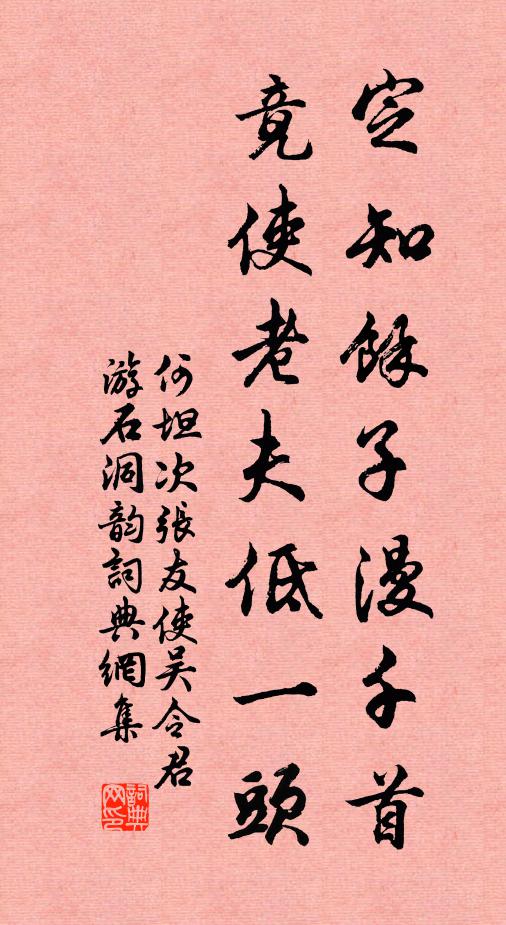 定知餘子漫千首
竟使老夫低一頭
何坦次張友使吴令君
游石洞韵詞典網集
詞典网印